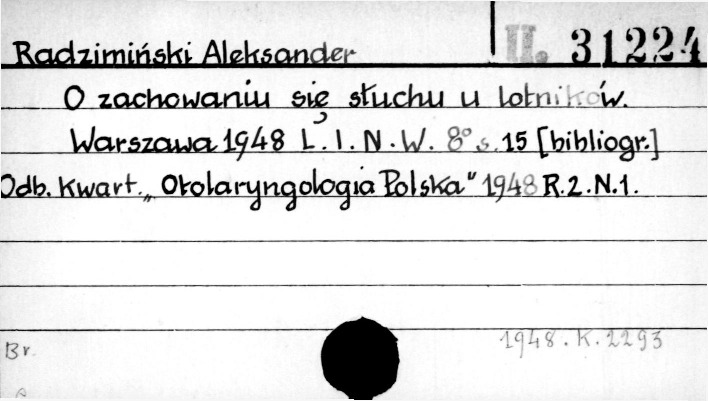 II. 31224
Radzimiński Aleksander
O zachowaniu się słuchu u lotników.
Warszawa 1948 L. I. N. W. 8° s. 15 [bibliogr.]
Odb. Kwart. „Otolaryngologia Polska" 1948 R. 2. N. 1.
Br.
1948. K. 2293